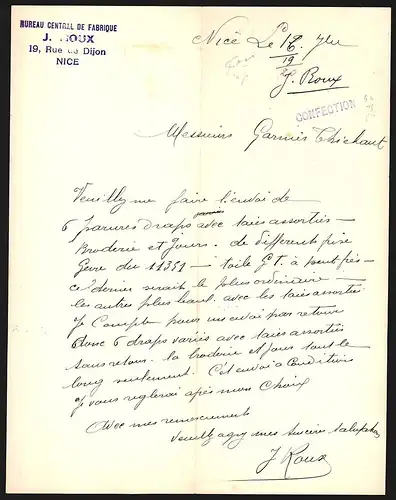 BUREAU CENTRAL DE FABRIQUE
J. ROUX
19, Rue de Dijon
NICE
Nice Le 18
19
J. Roux
CONFECTION
Messieurs Garnier Thiebaut
Veuillez me faire l'envoi de
6 parures draps avec taies assorties
Broderie et Jours. de différents prix
Genre du 11351 — toile GT. à peu près —
ce dernier serait le plus ordinaire —
les autres plus haut. avec les taies assorties
Je Compte pour un envoi pas retenu
donc 6 draps variés avec taies assorties
sans retours. la broderie et jours tout le
long seulement. Cet envoi à Conditions
Je vous reglerai après mon Choix
Avec mes remerciements
Veuillez agréer mes sincères salutations
J Roux